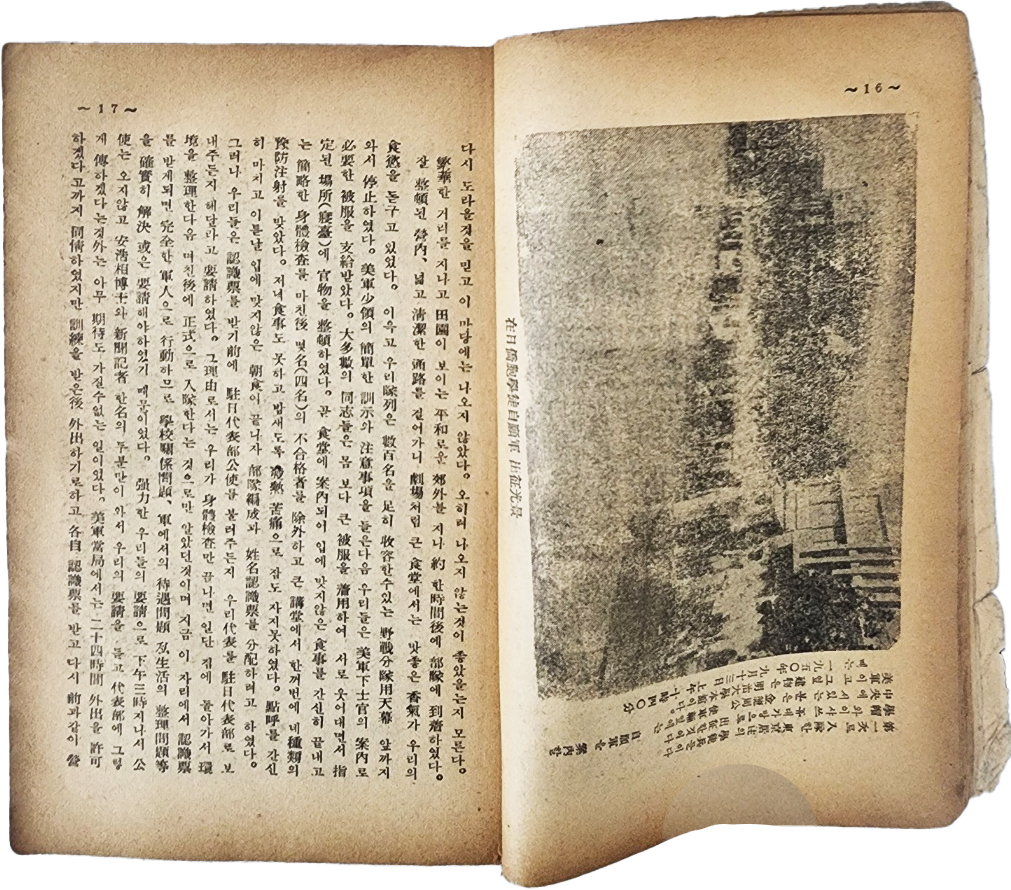 ~16~
在日僑胞學徒自願軍 出征光景
第一次로 入隊한 東京居住의
自願軍을 案內할
美軍이고 建物은 明治大學本館이다
一九五〇年 九月十三日 上午十時四〇分
~17~
다시 도라올것을 믿고 이 마당에는 나오지 않았다。오히려 나오지 않는것이 좋았을는지 모른다。
繁華한 거리를 지나고 田園이 보이는 平和로운 郊外를 지나 約 한時間後에 部隊에 到着하였다。
잘 整頓된 營內、넓고 淸潔한 通路를 걸어가니 劇場처럼 큰 食堂에서는 맛좋은 香氣가 우리의
食慾을 돋구고 있었다。 이윽고 우리隊列은 數百名을 足히 收容한수있는 野戰分隊用天幕 앞까지
와서 停止하였다。美軍少領의 簡單한 訓示와 注意事項을 들은다음 우리들은 美軍下士官의 案內로
必要한 被服을 支給받았다。大多數의 同志들은 몸 보다 큰 被服을 着用하여 서로 웃어대면서 指
定된 場所(寢臺)에 官物을 整頓하였다。곧 食堂에 案內되어 입에 맞지않은 食事를 간신히 끝내고
는 簡略한 身體檢査를 마친後 몇名(四名)의 不合格者를 除外하고 큰 講堂에서 한꺼번에 네種類의
豫防注射를 맞았다。저녁食事도 못하고 밤새도록 苦痛으로 잠도 자지못하였다。點呼를 간신
히 마치고 이튿날 입에 맞지않은 朝食이 끝나자 部隊編成과 姓名認識票를 分配하려고 하였다。
그러나 우리들은 認識票를 받기前에 駐日代表部公使를 불러주든지 우리代表를 駐日代表部로 보
내주든지 해달라고 要請하였다。그理由로서는 우리가 身體檢査만 끝나면 일단 집에 돌아가서 環
境을 整理한다음 며친後에 正式으로 入隊한다는 것으로만 알았던것이며 지금 이 자리에서 認識票
를 받게되면 完全한軍人으로 行動하므로 學校關係問題、軍에서의 待遇問題 及生活의 整理問題等
을 確實히 解決 或은 要請해야하였기 때문이었다。 强力한 우리들의 要請으로 下午三時지나서 公
使는 오지않고 安浩相博士와 新聞記者 한名의 두분만이 와서 우리의 要請을 듣고 代表部에 그렇
게 傳하겠다는것外는 아무 期待도 가질수없는 일이었다。美軍當局에서는 二十四時間 外出을 許可
하겠다고까지 同情하였지만 訓練을 받은後 外出하기로하고 各自 認識票를 받고 다시 前과같이 營